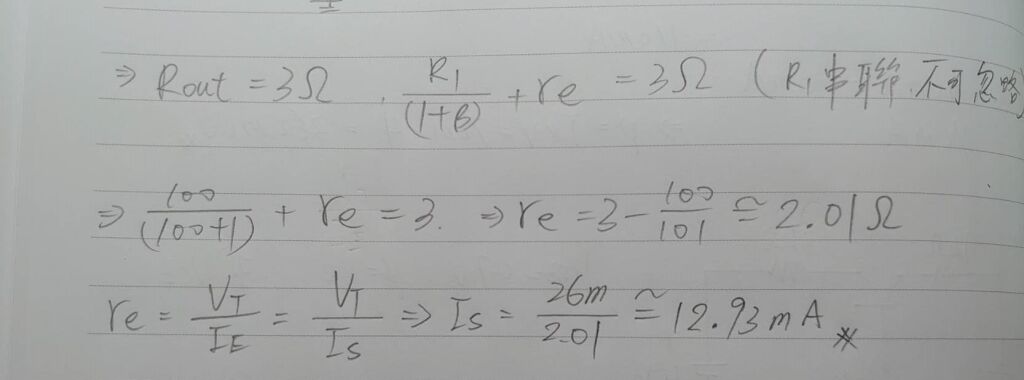 ⇒ Rout = 3Ω , R1/(1+β) + re = 3Ω (R1串聯,不可忽略)
⇒ 100/(100+1) + re = 3. ⇒ re = 3 - 100/101 ≅ 2.01Ω
re = VT/IE = VT/IS ⇒ IS = 26m/2.01 ≅ 12.93mA